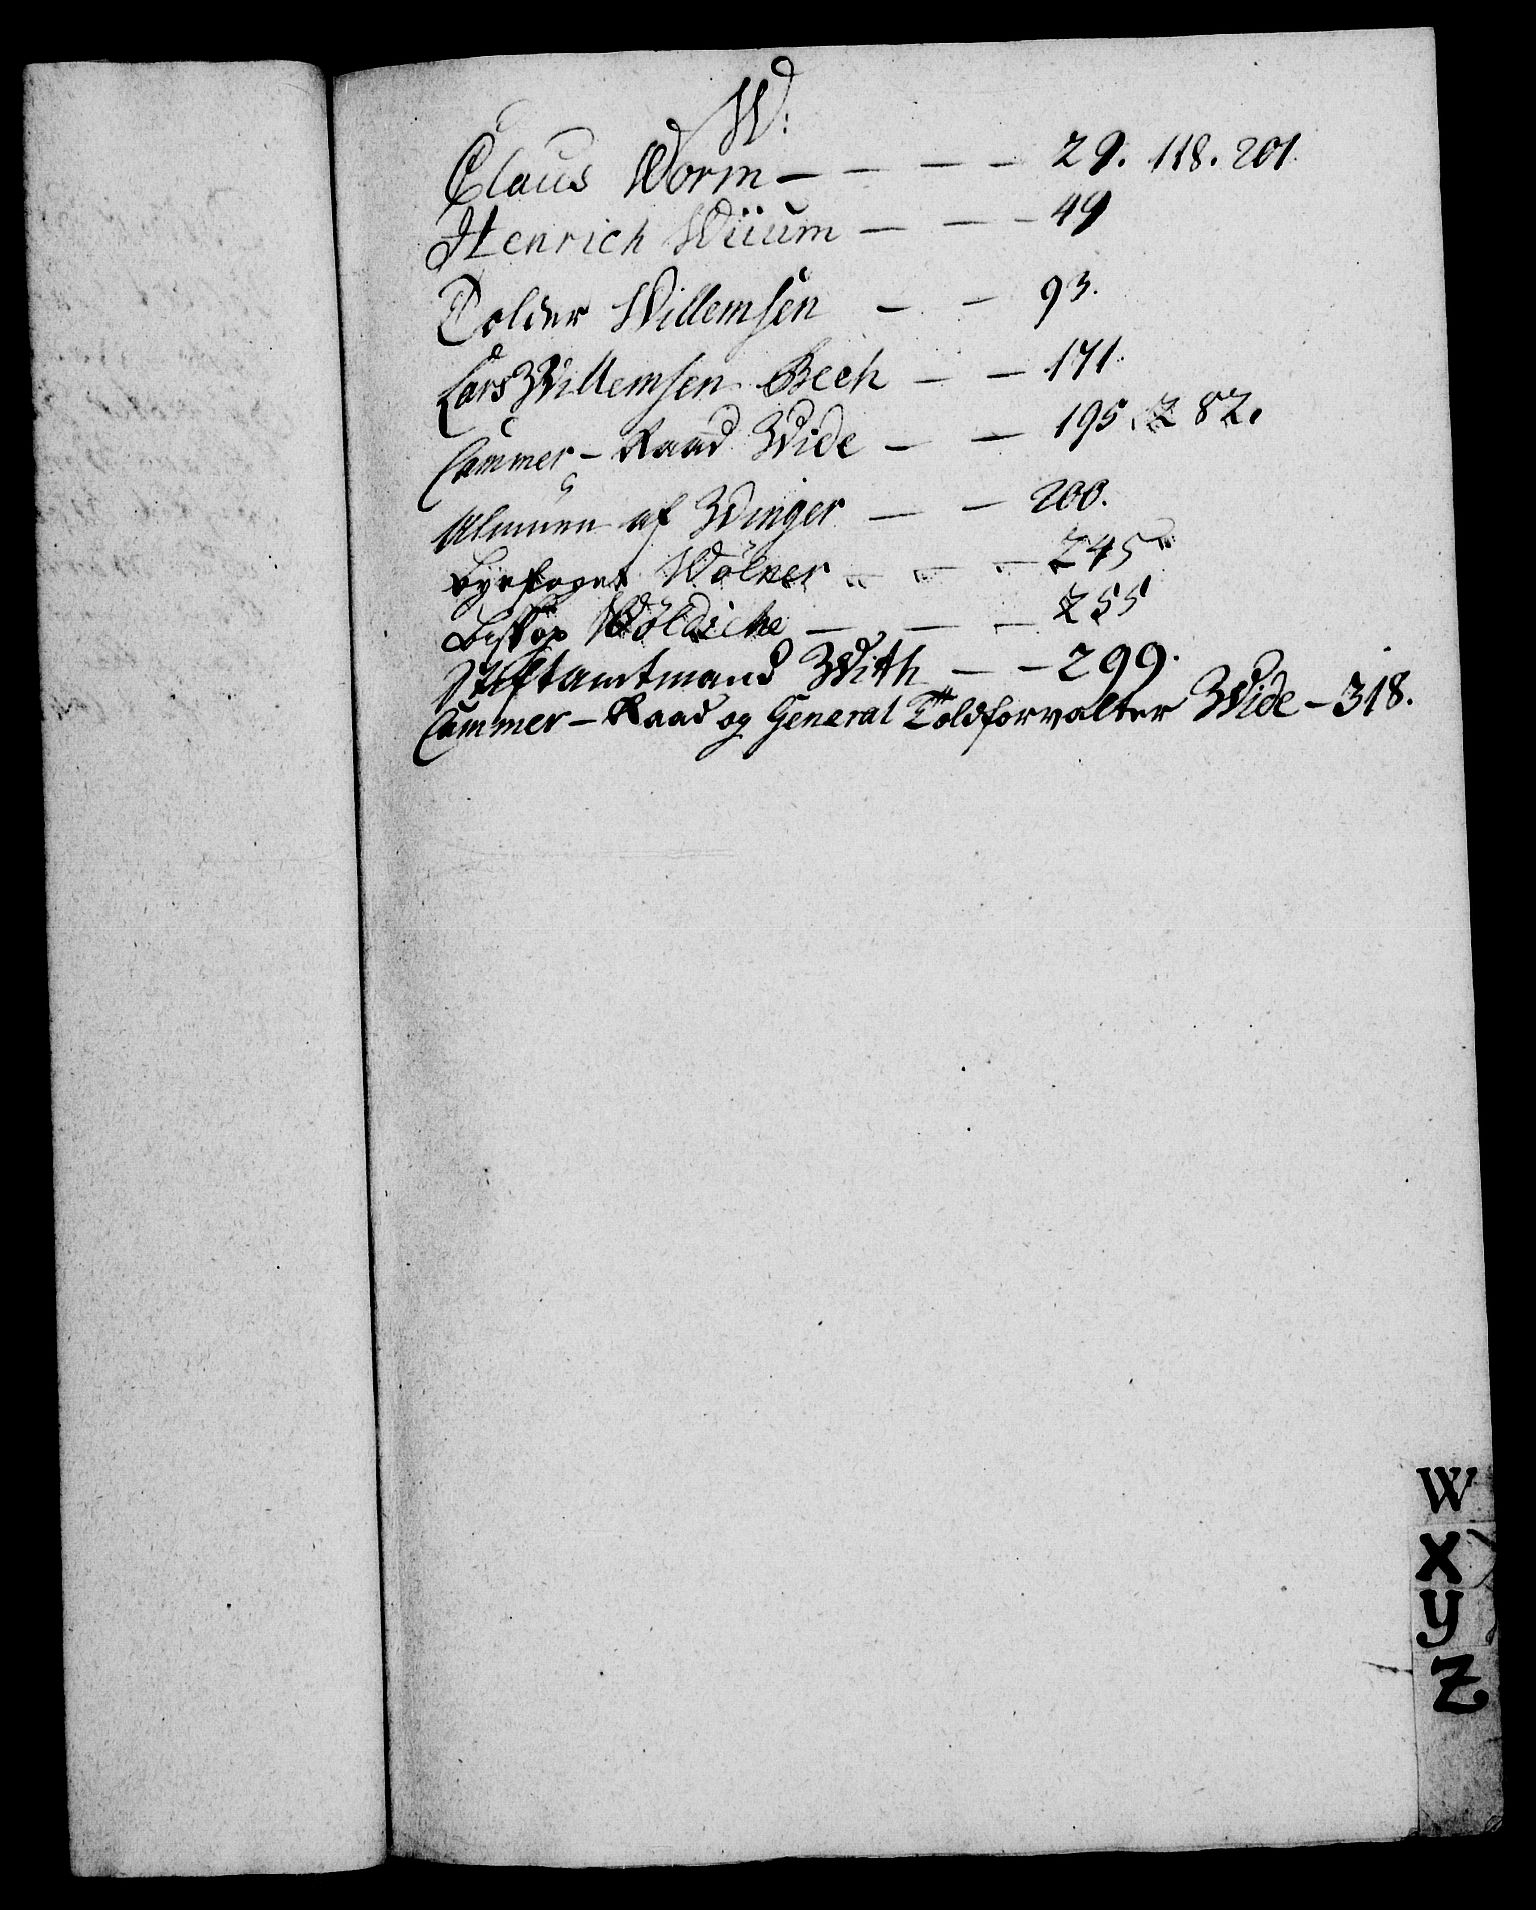 W:
Claus Worm - - - - 29. 118. 201
Henrich Wiium - - - 49
Tolder Willemsen - - 93.
Lars Willemsen Bech - - 171.
Cammer-Raad Wide - - 195. 282.
Almuen af Winger - - 200.
Byefoget Wölner - - - 245
Biskop Wöldiche - - - 255
Stiftamtmand With - - 299.
Cammer-Raad og General Toldforvalter Wide - 318.
W
X
Y
Z